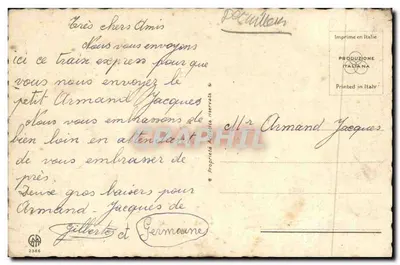 Très chers Amis
Nous vous envoyons
ici ce train express pour que
vous nous envoyez le
petit Armand Jacques
Nous vous embrassons de
bien loin en attendant
de vous embrasser de
près.
Deux gros baisers pour
Armand-Jacques de
Gilberte et Germaine
Mr Armand Jacques
Imprimé en Italie
PRODUZIONE
ITALIANA
Printed in Italy
Proprietà Artistica riservata
CPARAMA